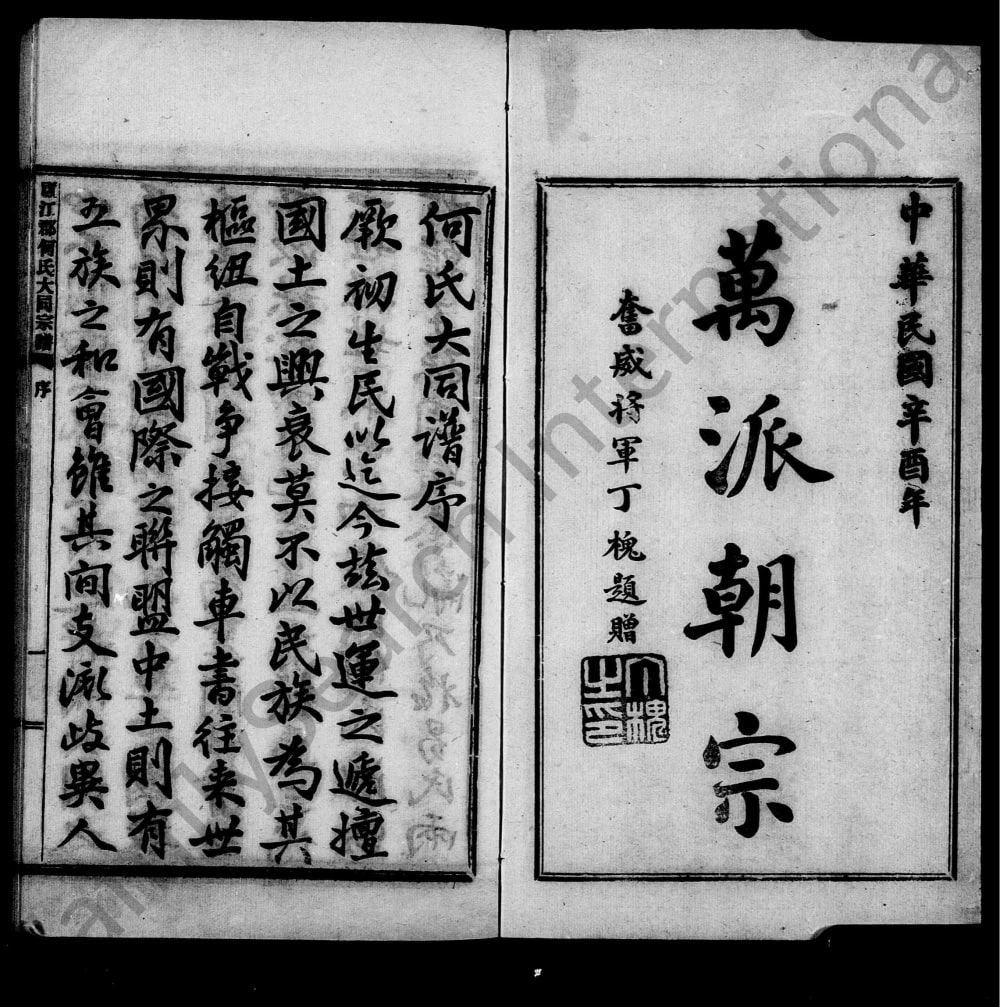 中華民國辛酉年
萬派朝宗
奮威將軍丁槐題贈
丁槐之印
何氏大同譜序
厥初生民以迄今茲世運之遞擅
國土之興衰莫不以民族為其
樞紐自戰爭接觸車書往来世
界則有國際之聯盟中土則有
五族之和會雖其間支派歧異人
廬江郡何氏大同宗譜 序
FamilySearch International